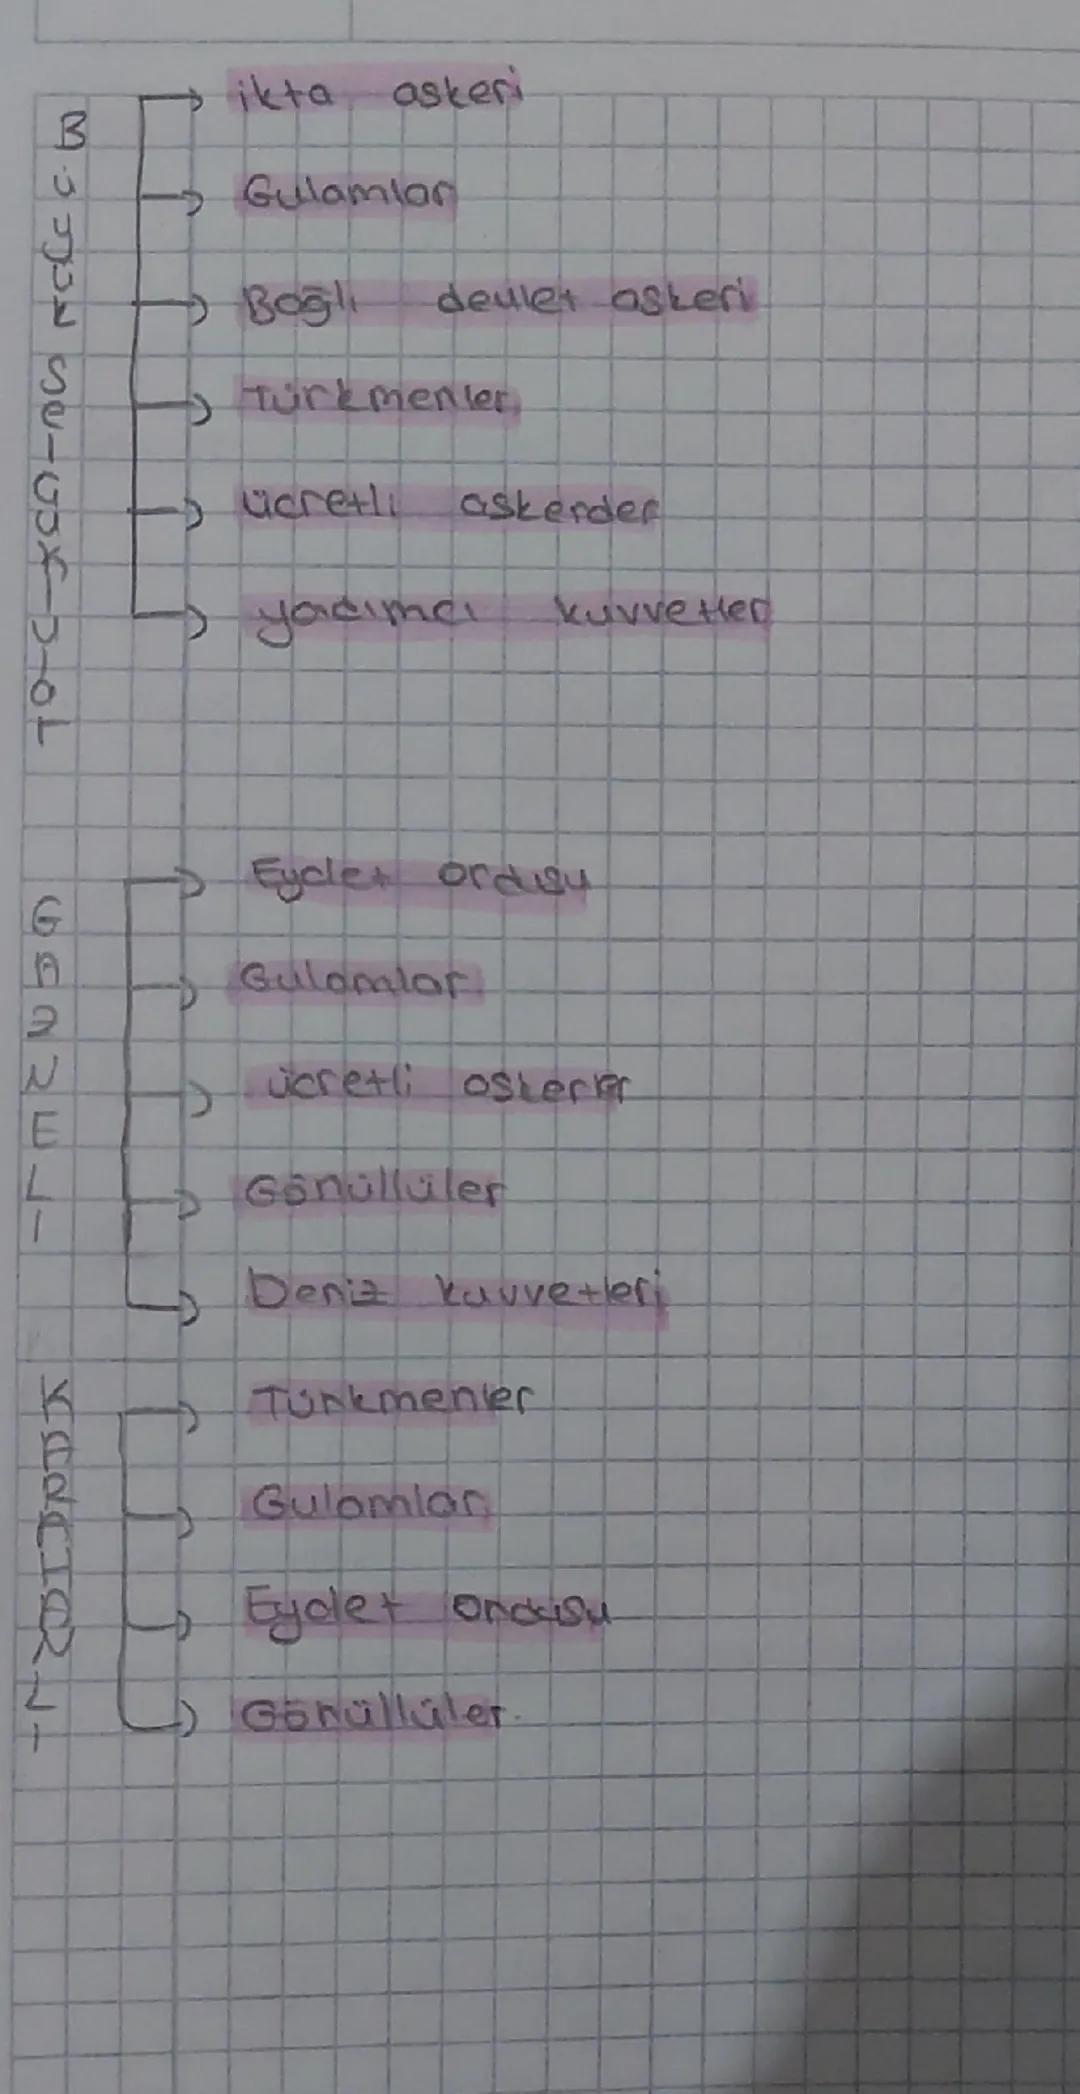 Büyük Selçuklular
ikta askeri
Gulamlar
Bağlı devlet askeri
Türkmenler
ücretli askerder
yardımcı kuvvetler
GAZNELİ
Eyalet ordusu
Gulamlar
ücretli askerler
Gönüllüler
Deniz kuvvetleri
KARAHANLI
Türkmenler
Gulamlar
Eyalet ordusu
Gönüllüler.